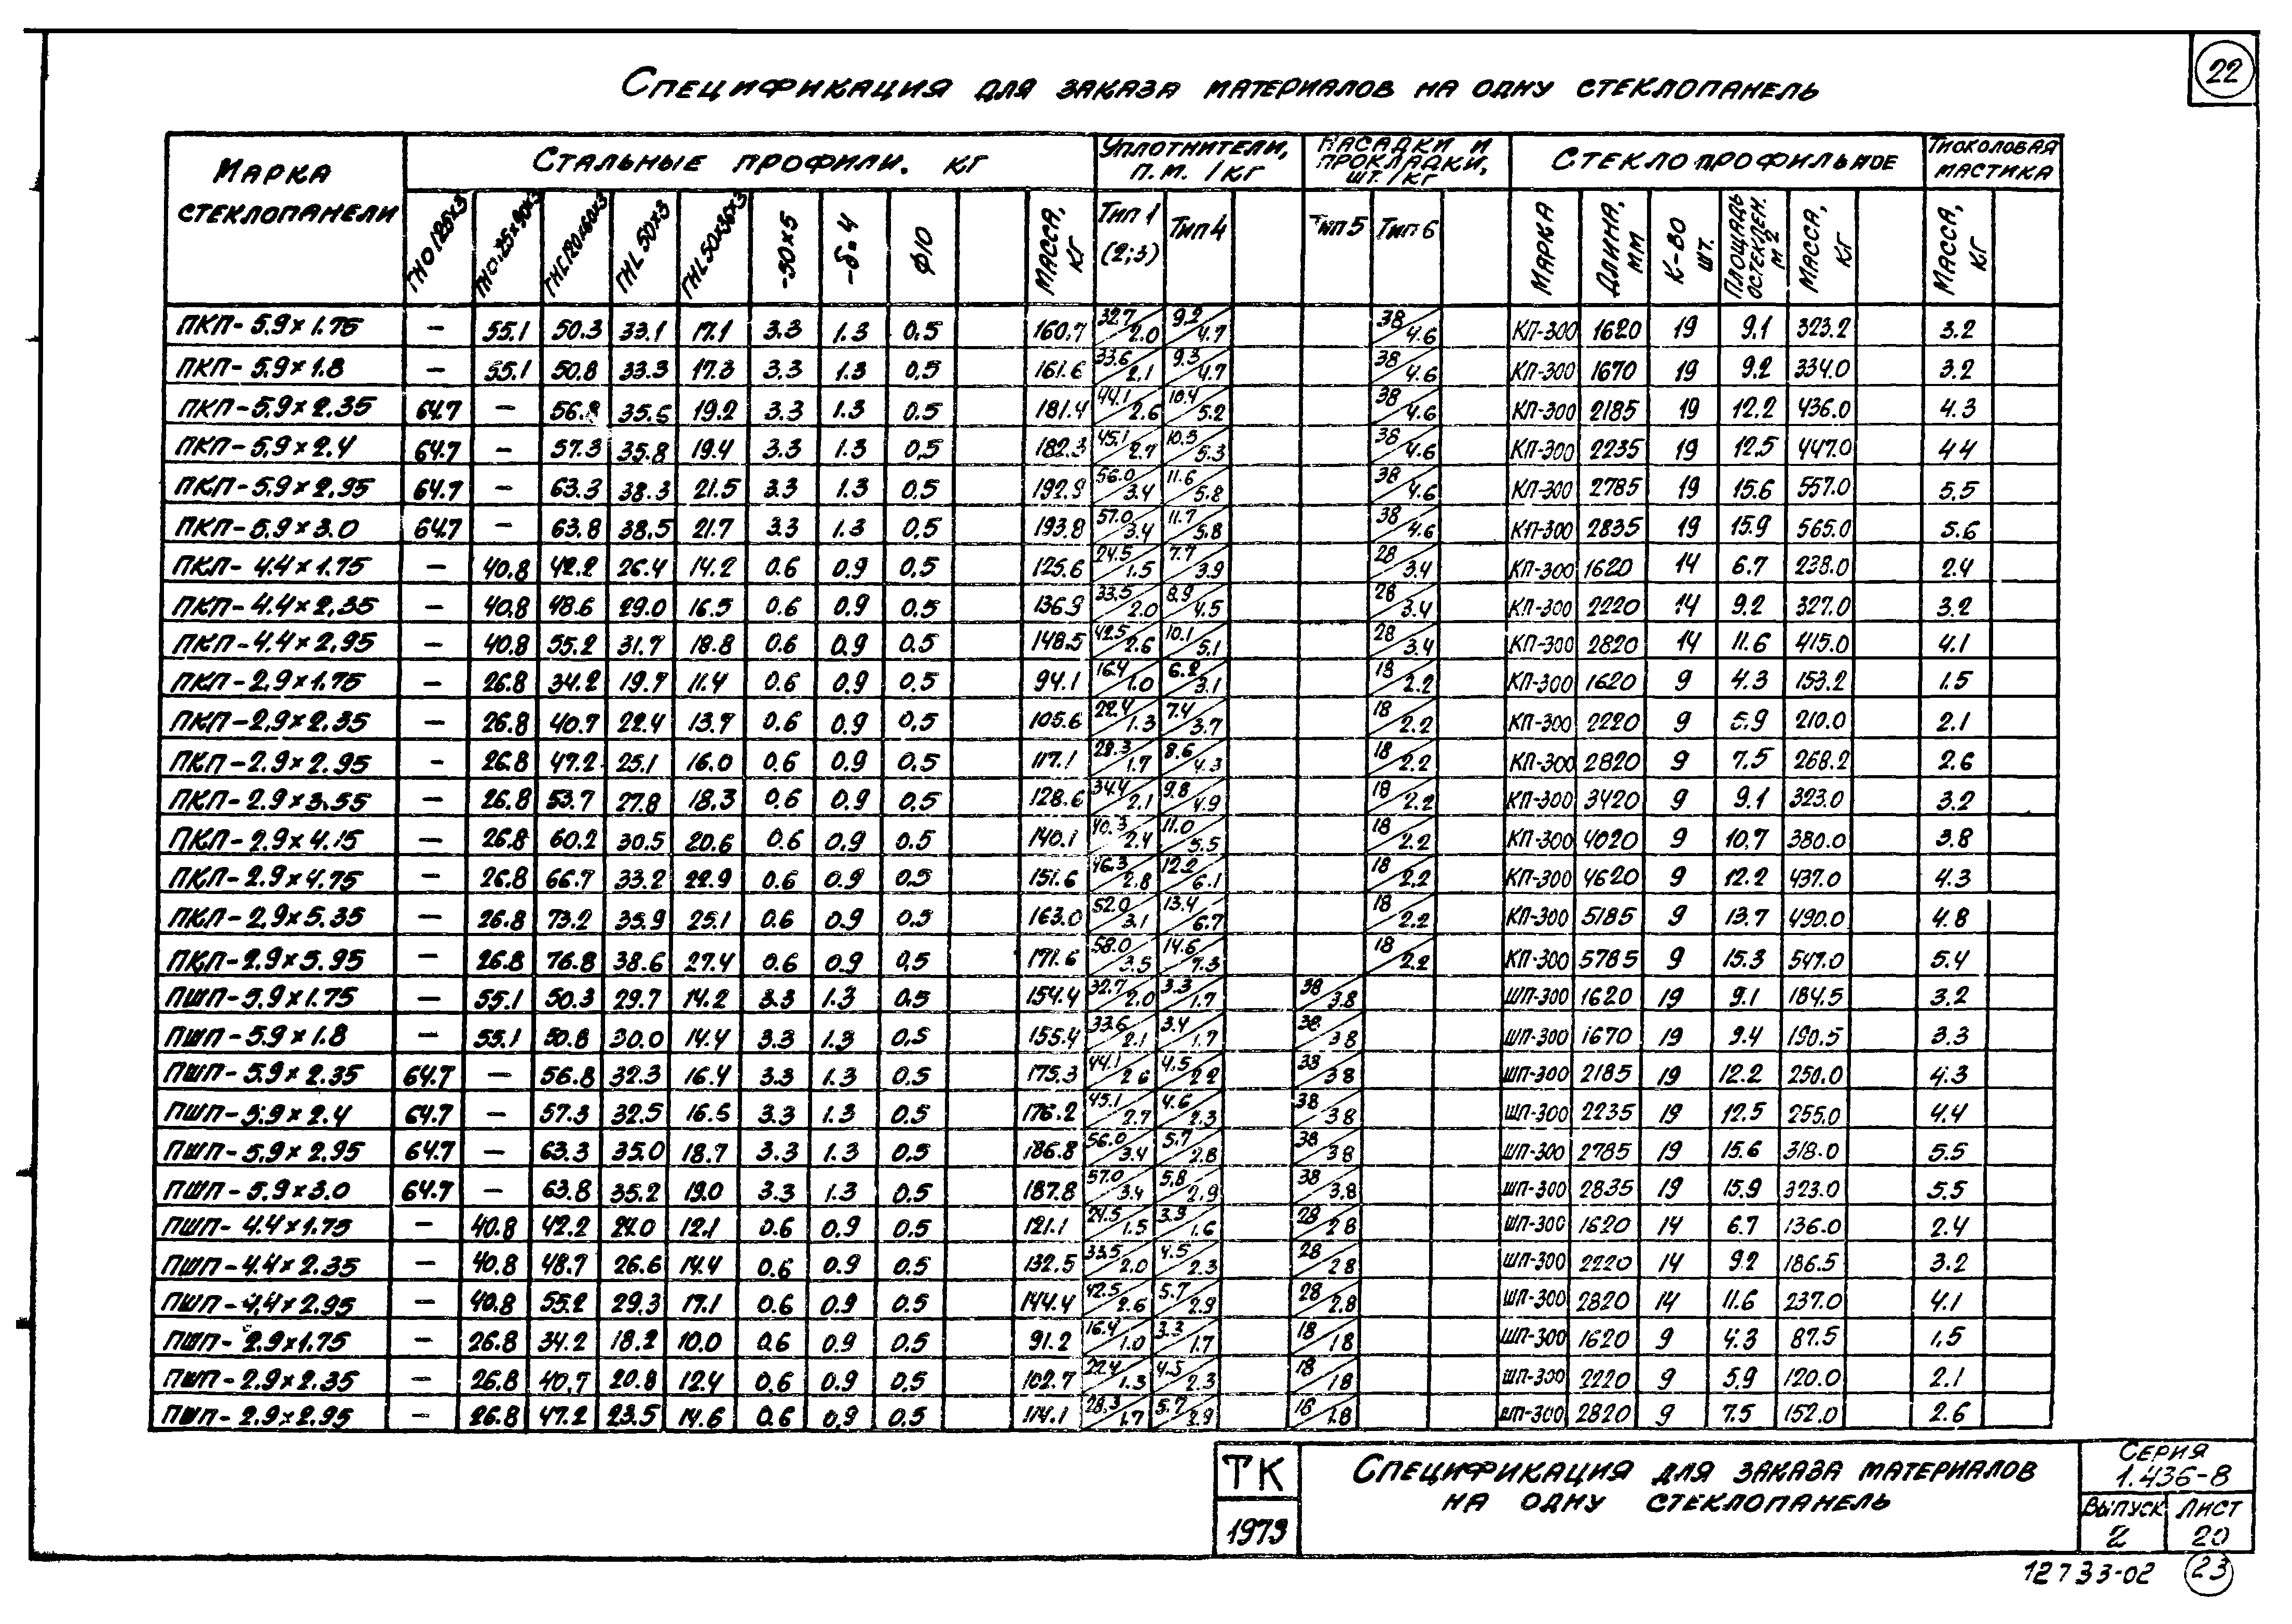 22
Спецификация для заказа материалов на одну стеклопанель
Марка стеклопанели | Стальные профили. кг | Уплотнители, п.м. /кг | Насадки и прокладки, шт./кг | Стекло профильное | Тиоколовая мастика
ГН□125×3 | ГН□.25×90×3 | ГН[120×60×3 | ГНL50×3 | ГНL50×36×3 | -50×5 | -δ=4 | Ф10 | Масса, кг | Тип 1 (2;3) | Тип 4 | Тип 5 | Тип 6 | Марка | Длина, мм | К-во шт. | Площадь остеклен. м² | Масса, кг | Масса, кг
ПКП-5.9×1.75 — 55.1 50.3 33.1 17.1 3.3 1.3 0.5 160.7 32.7/2.0 9.2/4.7 38/4.6 КП-300 1620 19 9.1 323.2 3.2
ПКП-5.9×1.8 — 55.1 50.8 33.3 17.3 3.3 1.3 0.5 161.6 33.6/2.1 9.3/4.7 38/4.6 КП-300 1670 19 9.2 334.0 3.2
ПКП-5.9×2.35 64.7 — 56.8 35.6 19.2 3.3 1.3 0.5 181.4 44.1/2.6 10.4/5.2 38/4.6 КП-300 2185 19 12.2 436.0 4.3
ПКП-5.9×2.4 64.7 — 57.3 35.8 19.4 3.3 1.3 0.5 182.3 45.1/2.7 10.5/5.3 38/4.6 КП-300 2235 19 12.5 447.0 4.4
ПКП-5.9×2.95 64.7 — 63.3 38.3 21.5 3.3 1.3 0.5 192.9 56.0/3.4 11.6/5.8 38/4.6 КП-300 2785 19 15.6 557.0 5.5
ПКП-5.9×3.0 64.7 — 63.8 38.5 21.7 3.3 1.3 0.5 193.8 57.0/3.4 11.7/5.8 38/4.6 КП-300 2835 19 15.9 565.0 5.6
ПКП-4.4×1.75 — 40.8 42.2 26.4 14.2 0.6 0.9 0.5 125.6 24.5/1.5 7.7/3.9 28/3.4 КП-300 1620 14 6.7 238.0 2.4
ПКП-4.4×2.35 — 40.8 48.6 29.0 16.5 0.6 0.9 0.5 136.9 33.5/2.0 8.9/4.5 28/3.4 КП-300 2220 14 9.2 327.0 3.2
ПКП-4.4×2.95 — 40.8 55.2 31.7 18.8 0.6 0.9 0.5 148.5 42.5/2.6 10.1/5.1 28/3.4 КП-300 2820 14 11.6 415.0 4.1
ПКП-2.9×1.75 — 26.8 34.2 19.7 11.4 0.6 0.9 0.5 94.1 16.4/1.0 6.2/3.1 18/2.2 КП-300 1620 9 4.3 153.2 1.5
ПКП-2.9×2.35 — 26.8 40.7 22.4 13.7 0.6 0.9 0.5 105.6 22.4/1.3 7.4/3.7 18/2.2 КП-300 2220 9 5.9 210.0 2.1
ПКП-2.9×2.95 — 26.8 47.2 25.1 16.0 0.6 0.9 0.5 117.1 28.3/1.7 8.6/4.3 18/2.2 КП-300 2820 9 7.5 268.2 2.6
ПКП-2.9×3.55 — 26.8 53.7 27.8 18.3 0.6 0.9 0.5 128.6 34.4/2.1 9.8/4.9 18/2.2 КП-300 3420 9 9.1 323.0 3.2
ПКП-2.9×4.15 — 26.8 60.2 30.5 20.6 0.6 0.9 0.5 140.1 40.3/2.4 11.0/5.5 18/2.2 КП-300 4020 9 10.7 380.0 3.8
ПКП-2.9×4.75 — 26.8 66.7 33.2 22.9 0.6 0.9 0.5 151.6 46.3/2.8 12.2/6.1 18/2.2 КП-300 4620 9 12.2 437.0 4.3
ПКП-2.9×5.35 — 26.8 73.2 35.9 25.1 0.6 0.9 0.5 163.0 52.0/3.1 13.4/6.7 18/2.2 КП-300 5185 9 13.7 490.0 4.8
ПКП-2.9×5.95 — 26.8 76.8 38.6 27.4 0.6 0.9 0.5 171.6 58.0/3.5 14.6/7.3 18/2.2 КП-300 5785 9 15.3 547.0 5.4
ПШП-5.9×1.75 — 55.1 50.3 29.7 14.2 3.3 1.3 0.5 154.4 32.7/2.0 3.3/1.7 38/3.8 ШП-300 1620 19 9.1 184.5 3.2
ПШП-5.9×1.8 — 55.1 50.8 30.0 14.4 3.3 1.3 0.5 155.4 33.6/2.1 3.4/1.7 38/3.8 ШП-300 1670 19 9.4 190.5 3.3
ПШП-5.9×2.35 64.7 — 56.8 32.3 16.4 3.3 1.3 0.5 175.3 44.1/2.6 4.5/2.2 38/3.8 ШП-300 2185 19 12.2 250.0 4.3
ПШП-5.9×2.4 64.7 — 57.3 32.5 16.6 3.3 1.3 0.5 176.2 45.1/2.7 4.6/2.3 38/3.8 ШП-300 2235 19 12.5 255.0 4.4
ПШП-5.9×2.95 64.7 — 63.3 35.0 18.7 3.3 1.3 0.5 186.8 56.0/3.4 5.7/2.8 38/3.8 ШП-300 2785 19 15.6 318.0 5.5
ПШП-5.9×3.0 64.7 — 63.8 35.2 19.0 3.3 1.3 0.5 187.8 57.0/3.4 5.8/2.9 38/3.8 ШП-300 2835 19 15.9 323.0 5.5
ПШП-4.4×1.75 — 40.8 42.2 24.0 12.1 0.6 0.9 0.5 121.1 24.5/1.5 3.3/1.6 28/2.8 ШП-300 1620 14 6.7 136.0 2.4
ПШП-4.4×2.35 — 40.8 48.7 26.6 14.4 0.6 0.9 0.5 132.5 33.5/2.0 4.5/2.3 28/2.8 ШП-300 2220 14 9.2 186.5 3.2
ПШП-4.4×2.95 — 40.8 55.2 29.3 17.1 0.6 0.9 0.5 144.4 42.5/2.6 5.7/2.9 28/2.8 ШП-300 2820 14 11.6 237.0 4.1
ПШП-2.9×1.75 — 26.8 34.2 18.2 10.0 0.6 0.9 0.5 91.2 16.4/1.0 3.3/1.7 18/1.8 ШП-300 1620 9 4.3 87.5 1.5
ПШП-2.9×2.35 — 26.8 40.7 20.8 12.4 0.6 0.9 0.5 102.7 22.4/1.3 4.5/2.3 18/1.8 ШП-300 2220 9 5.9 120.0 2.1
ПШП-2.9×2.95 — 26.8 47.2 23.5 14.6 0.6 0.9 0.5 114.1 28.3/1.7 5.7/2.9 18/1.8 ШП-300 2820 9 7.5 152.0 2.6
ТК
1973
Спецификация для заказа материалов
на одну стеклопанель
Серия
1.436-8
Выпуск Лист
2 20
12733-02 23